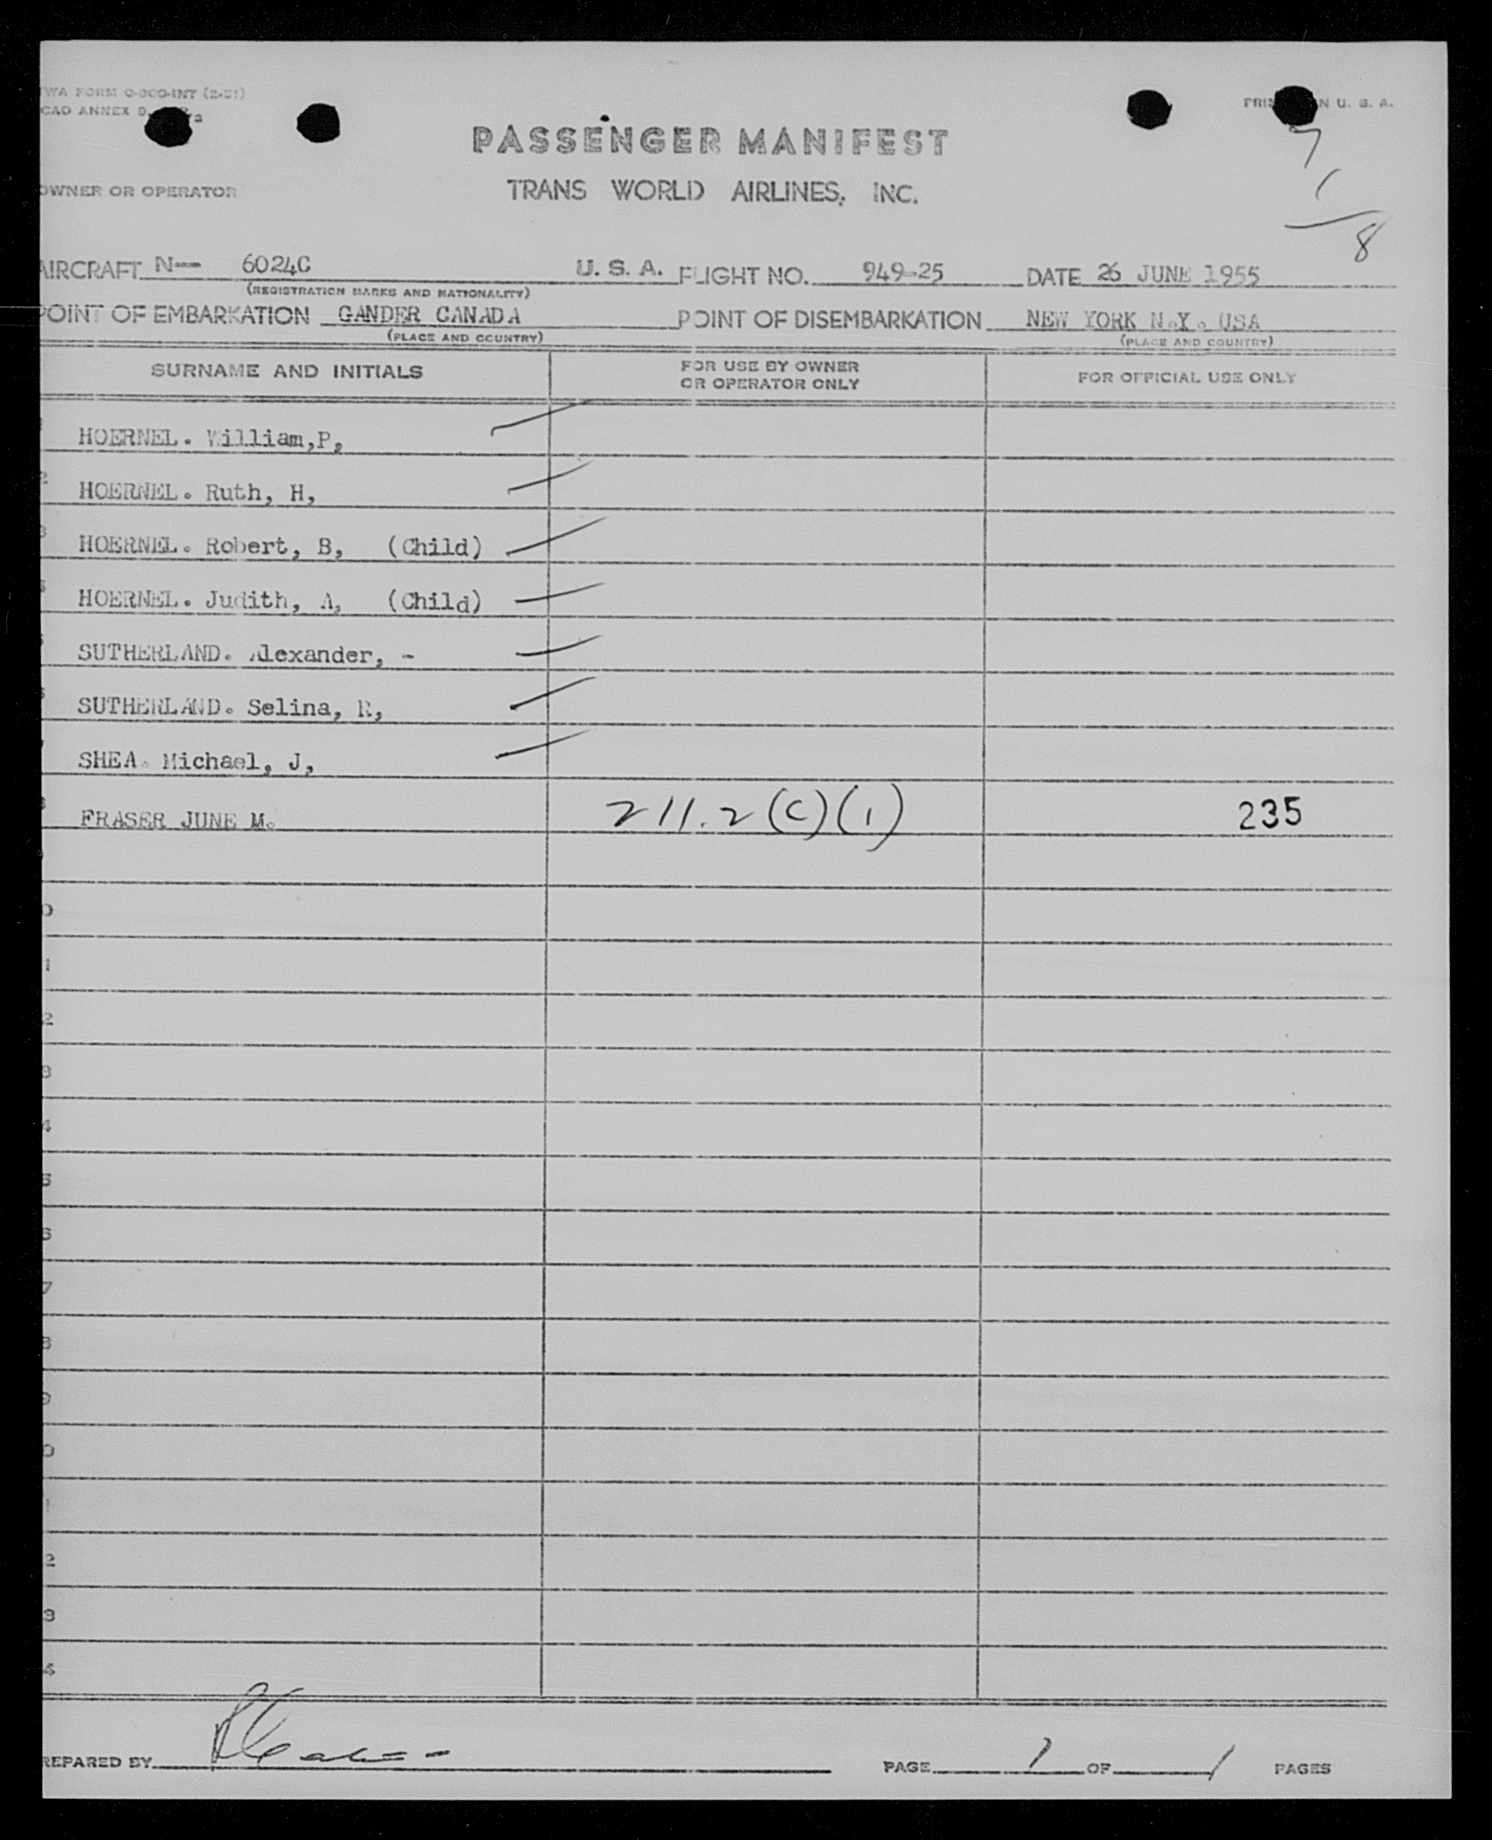 TWA FORM O-300-INT (2-51)
PRIN N U. S. A.
CAO ANNEX 9.
PASSENGER MANIFEST
7
OWNER OR OPERATOR
TRANS WORLD AIRLINES, INC.
1
8
AIRCRAFT N-- 6024C U. S. A. FLIGHT NO. 949-25 DATE 26 JUNE 1955
(REGISTRATION MARKS AND NATIONALITY)
POINT OF EMBARKATION GANDER CANADA POINT OF DISEMBARKATION NEW YORK N.Y. USA
(PLACE AND COUNTRY) (PLACE AND COUNTRY)
SURNAME AND INITIALS FOR USE BY OWNER OR OPERATOR ONLY FOR OFFICIAL USE ONLY
HOERNEL. William,P,
2 HOERNEL. Ruth, H,
3 HOERNEL. Robert, B, (Child)
HOERNEL. Judith, A, (Child)
SUTHERLAND. Alexander, -
SUTHERLAND. Selina, R,
SHEA. Michael, J,
FRASER JUNE M. 211.2(c)(1) 235
0
1
2
3
4
5
6
7
8
9
0
1
2
3
4
REPARED BY PAGE 1 OF 1 PAGES